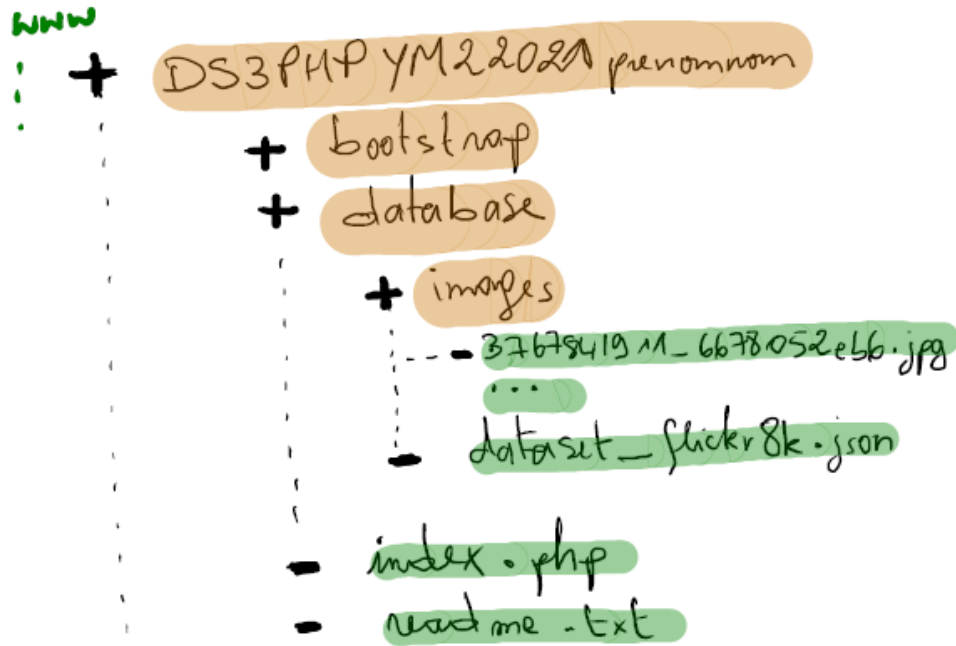 www
DS3PHPYM22021prenomnom
bootstrap
database
images
3767841911_6678052eb6.jpg
...
dataset_flickr8k.json
index.php
readme.txt